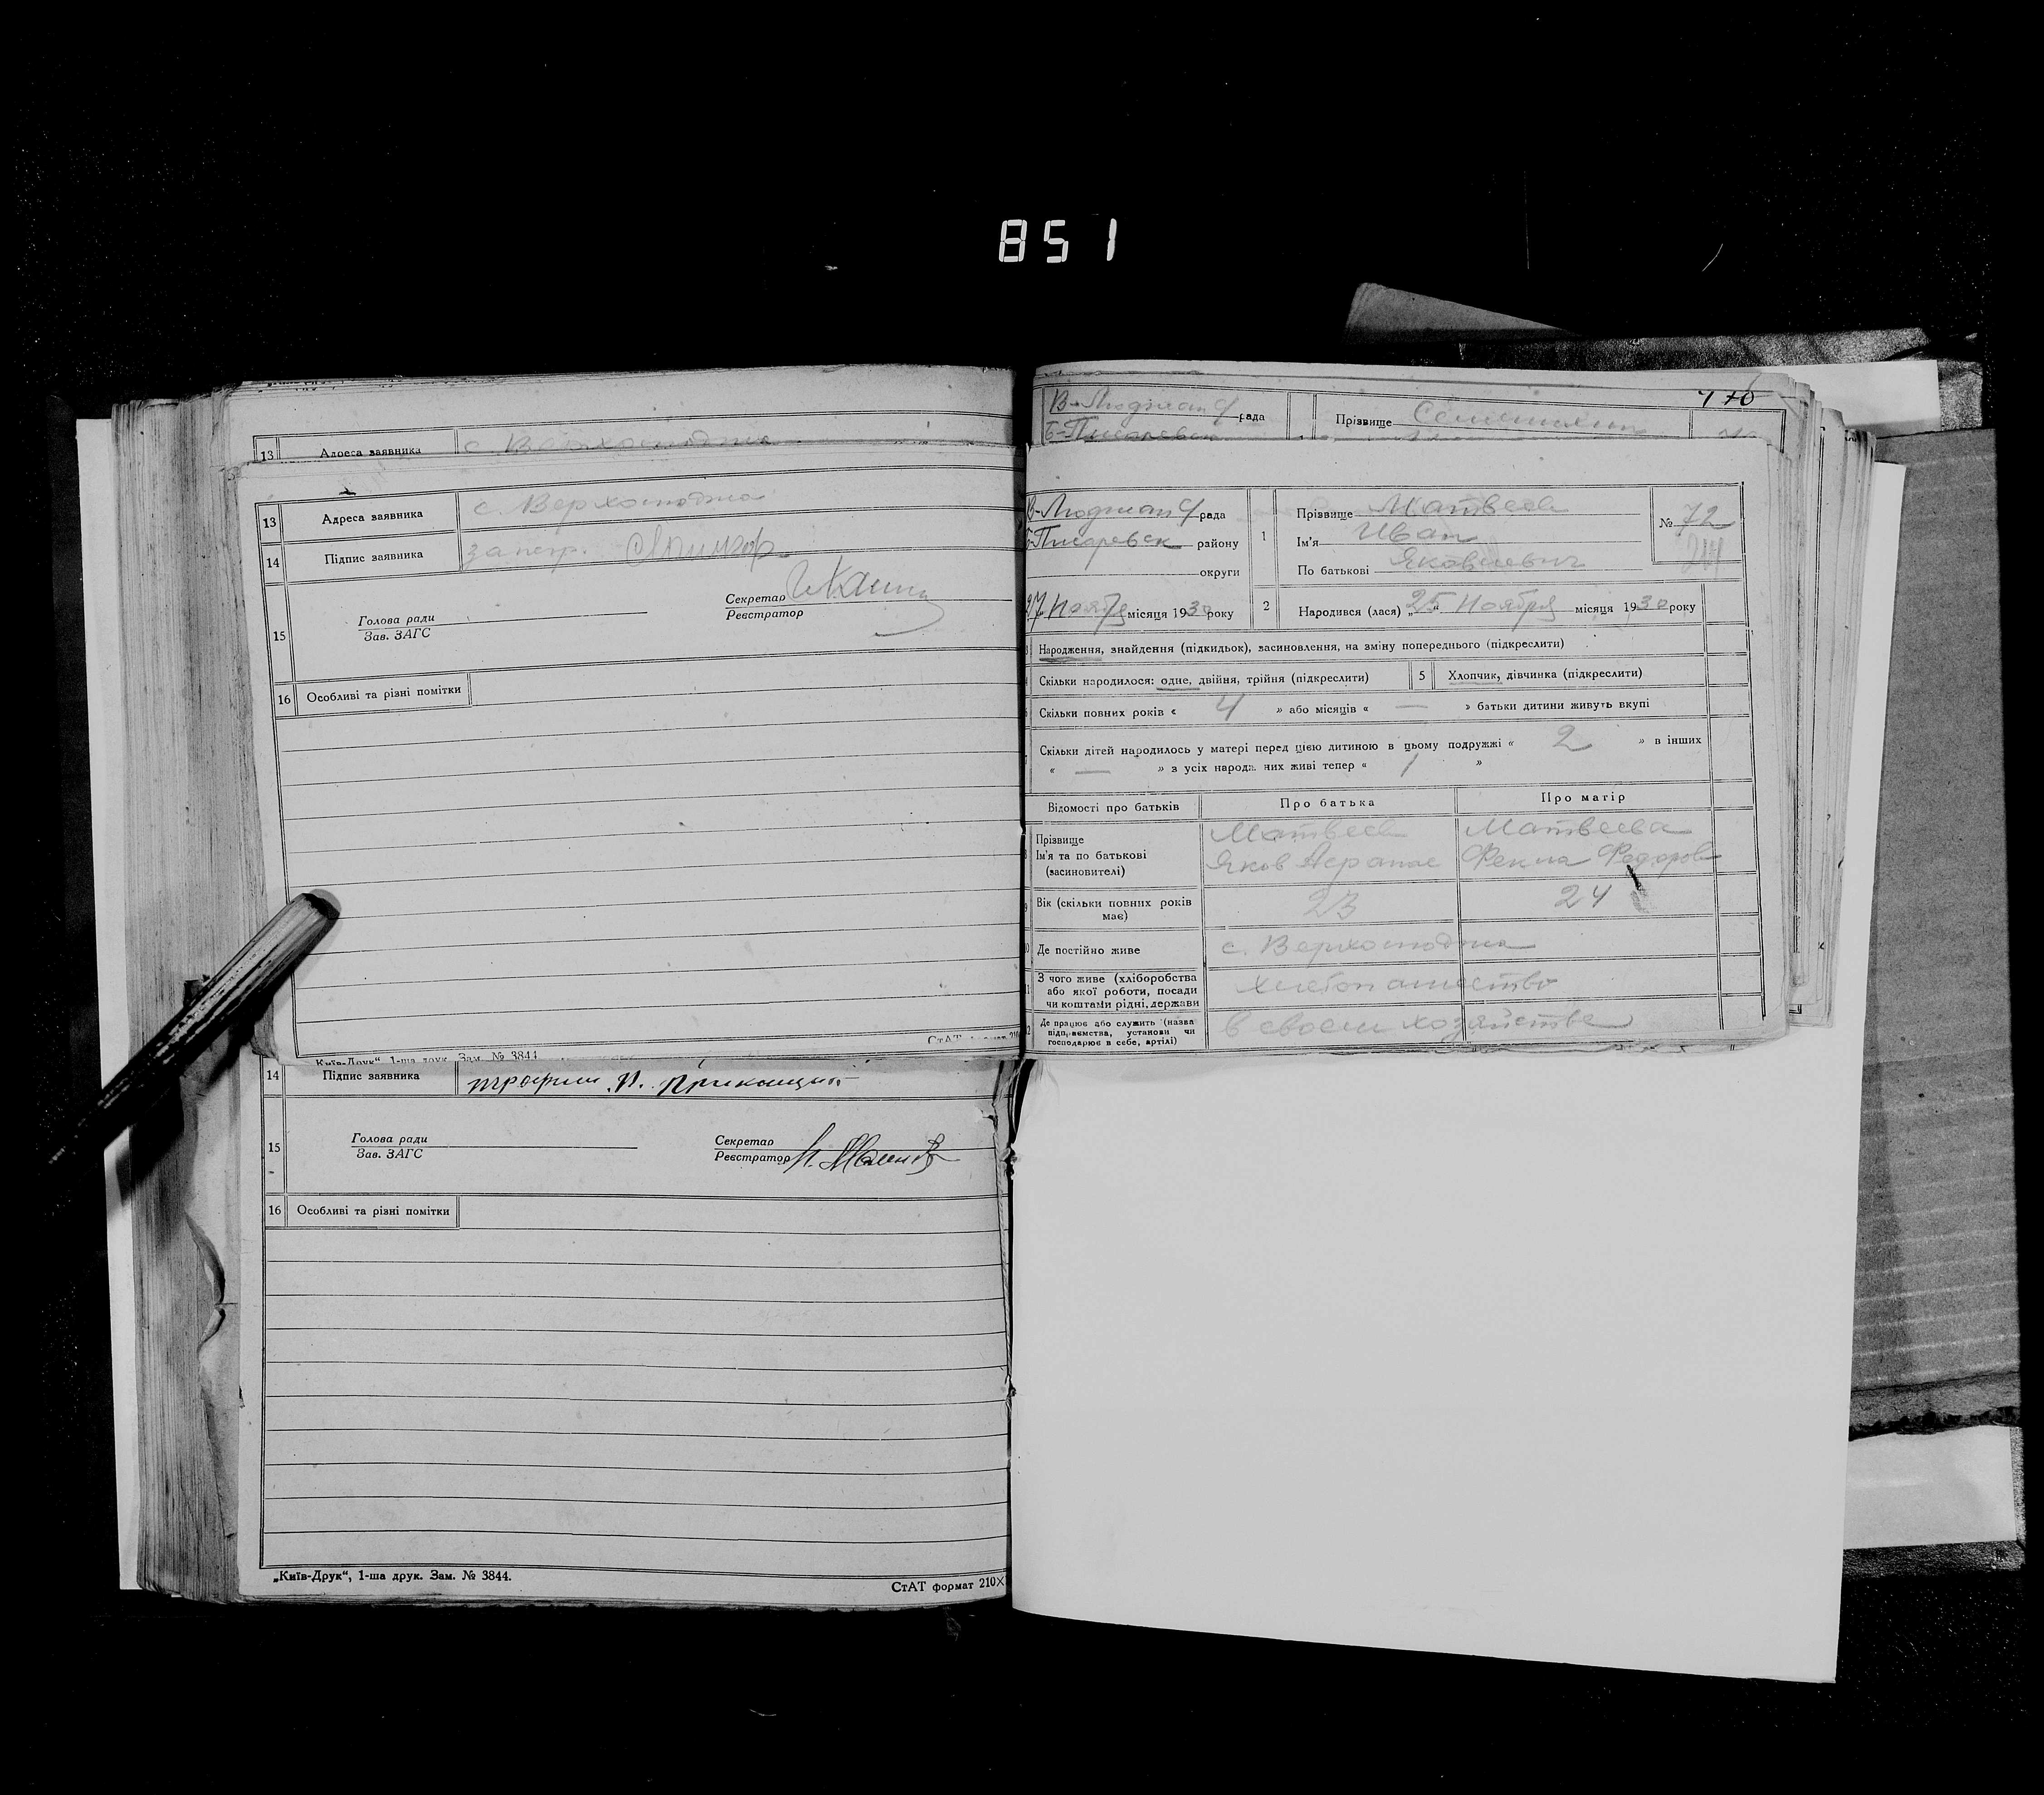 851
13 Адреса заявника
с. Верхолюджа
13 Адреса заявника с. Верхолюджа
14 Підпис заявника за негр.
15 Голова ради
Зав. ЗАГС
Секретар
Реєстратор
16 Особливі та різні помітки
СтАТ
„Київ-Друк“, 1-ша друк. Зам. № 3844
14 Підпис заявника Трофим И.
15 Голова ради
Зав. ЗАГС
Секретар
Реєстратор
16 Особливі та різні помітки
„Київ-Друк“, 1-ша друк. Зам. № 3844.
СтАТ формат 210×
В-Люджан С/рада
Прізвище
Б-Писаревск
В-Люджан С/рада
Б-Писаревск району
округи
27 Ноября місяця 1930 року
1 Прізвище Матвеев
Ім'я Иван
По батькові Яковлевич
№ 72
2 Народився (лася) „25“ Ноября місяця 1930 року
Народження, знайдення (підкидьок), засиновлення, на зміну попереднього (підкреслити)
Скільки народилося: одне, двійня, трійня (підкреслити)
5 Хлопчик, дівчинка (підкреслити)
Скільки повних років « 4 » або місяців « — » батьки дитини живуть вкупі
Скільки дітей народилось у матері перед цією дитиною в цьому подружжі « 2 » в інших
« — » з усіх народж них живі тепер « 1 »
Відомості про батьків Про батька Про матір
Прізвище Матвеев Матвеева
Ім'я та по батькові Яков Афанас Фекла Федоров
(засиновителі)
Вік (скільки повних років має) 23 24
Де постійно живе с. Верхолюджа
З чого живе (хліборобства
або якої роботи, посади
чи коштами рідні, держави
хлебопашество
Де працює або служить (назва
підприємства, установи чи
господарює в себе, артілі)
в своем хозяйстве